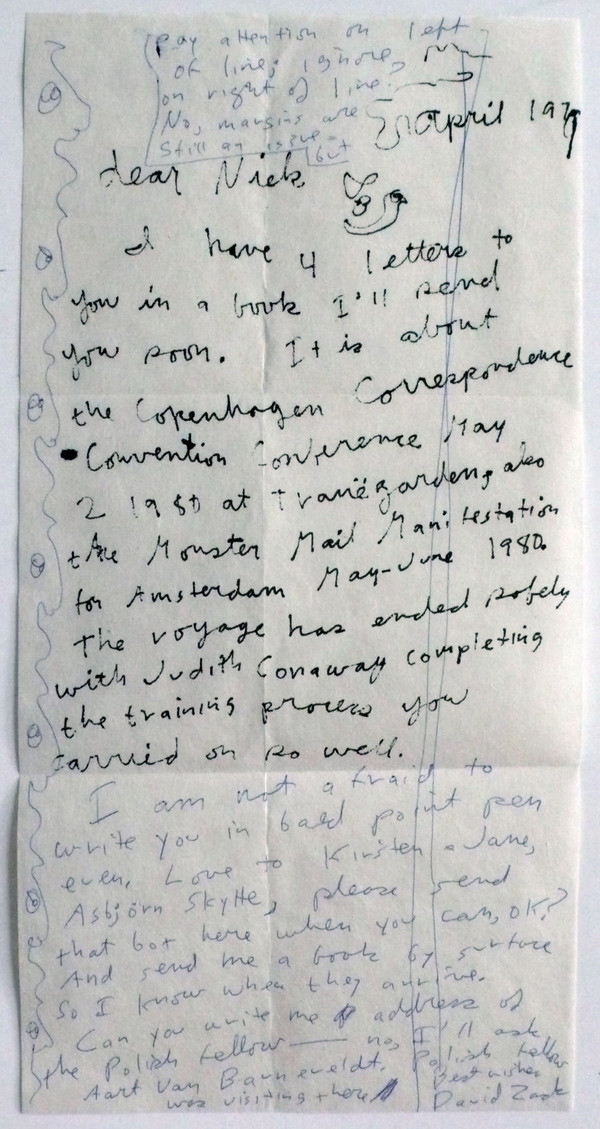 Pay attention on left
of line; ignore,
on right of line.
No, margins are
still an issue -
but
April 197
dear Nick
I have 4 letters to
you in a book I'll send
you soon. It is about
the Copenhagen Correspondence
Convention Conference May
2 1980 at Tranegarden, also
the Monster Mail Manifestation
for Amsterdam May-June 1980.
The voyage has ended safely
with Judith Conaway completing
the training process you
carried on so well.
I am not afraid to
write you in ball point pen
even. Love to Kirsten & Jane,
Asbjörn Skytte, please send
that box here when you can, OK?
And send me a book by surface
So I know when they arrive.
Can you write me address of
the Polish fellow — no, I'll ask
Aart van Barneveldt. Polish fellow
was visiting there
Best wishes
David Zack